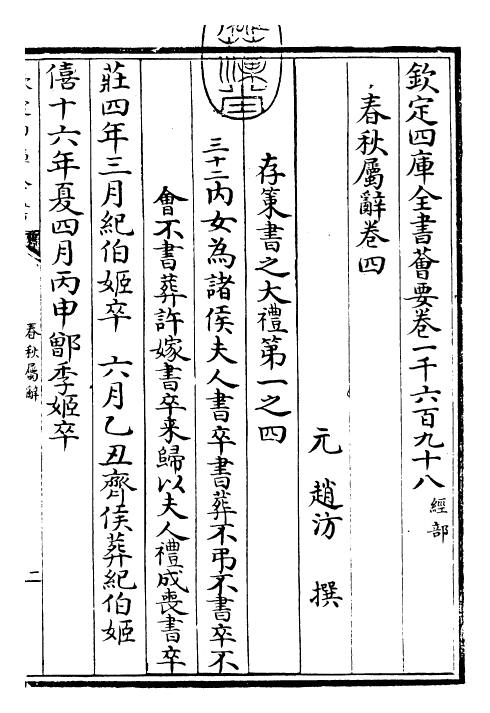 欽定四庫全書薈要卷一千六百九十八 經部
春秋屬辭卷四
元 趙汸 撰
存策書之大禮第一之四
三十二內女為諸侯夫人書卒書葬不弔不書卒不
會不書葬許嫁書卒来歸以夫人禮成喪書卒
莊四年三月紀伯姬卒 六月乙丑齊侯葬紀伯姬
僖十六年夏四月丙申鄫季姬卒
春秋屬辭
二